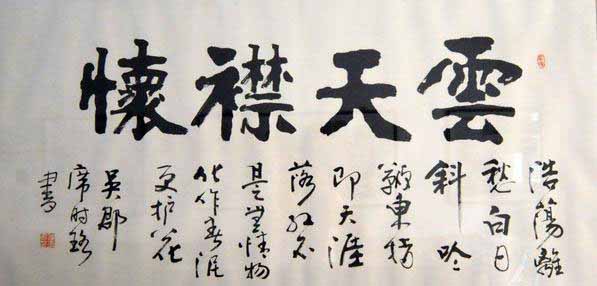 雲天襟懷
浩蕩離
愁白日
斜吟
鞭東指
即天涯
落红不
是無情物
化作春泥
更护花
吴郡
席时珞
書